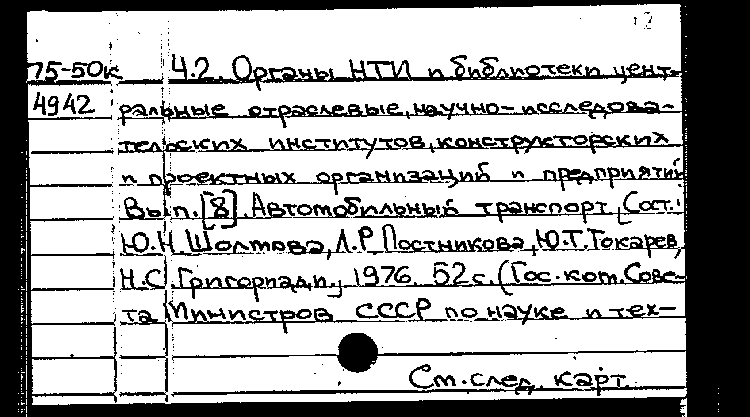 75-50к Ч.2. Органы НТИ и библиотеки цент-
4942 ральные отраслевые, научно-исследова-
тельских институтов, конструкторских
и проектных организаций и предприятий
Вып. [8]. Автомобильный транспорт [Сост.:
Ю.Н. Шолтова, Л.Р. Постникова, Ю.Т. Токарев,
Н.С. Григориади., 1976. 52 с. (Гос. ком. Сове-
та Министров СССР по науке и тех-
См. след. карт.